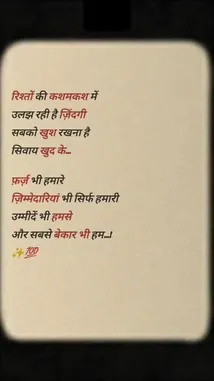 रिश्तों की कशमकश में
उलझ रही है ज़िंदगी
सबको खुश रखना है
सिवाय खुद के...
फ़र्ज़ भी हमारे
ज़िम्मेदारियां भी सिर्फ हमारी
उम्मीदें भी हमसे
और सबसे बेकार भी हम...!
✨💯